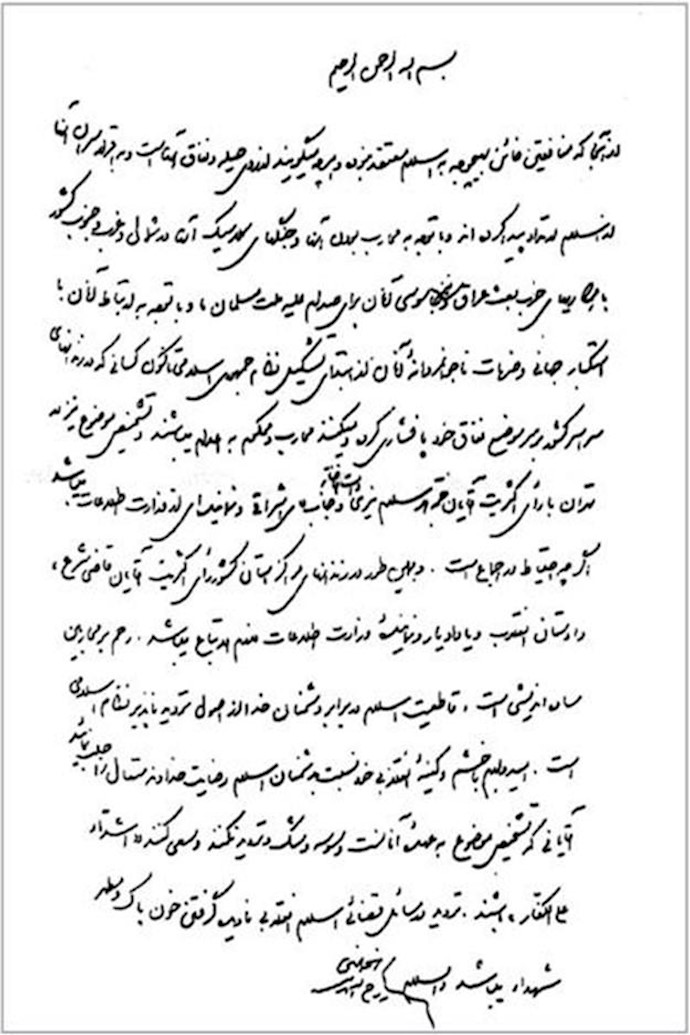 بسم الله الرحمن الرحیم
از آنجا که منافقین خائن بهیچوجه به اسلام معتقد نبوده و هر چه میگویند از روی حیله و نفاق آنهاست و به اقرار سران آنها
از اسلام ارتداد پیدا کرده‌اند و با توجه به محارب بودن آنها و جنگهای کلاسیک آنها در شمال و غرب و جنوب کشور
با همکاریهای حزب بعث عراق و نیز جاسوسی آنان برای صدام علیه ملت مسلمان ما و با توجه به ارتباط آنان با
استکبار جهانی و ضربات ناجوانمردانهٔ آنان از ابتدای تشکیل نظام جمهوری اسلامی تا کنون کسانی که در زندانهای
سراسر کشور بر سر موضع نفاق خود پافشاری کرده و میکنند محارب و محکوم به اعدام میباشند و تشخیص موضوع نیز در
تهران با رأی اکثریت آقایان حجة الاسلام نیری دامت افاضاته و جناب آقای اشراقی و نماینده‌ای از وزارت اطلاعات میباشد
اگر چه احتیاط در اجماع است . و همین طور در زندانهای مراکز استان کشور رأی اکثریت آقایان قاضی شرع ،
دادستان انقلاب و یا دادیار و نمایندهٔ وزارت اطلاعات لازم الاتباع میباشد . رحم بر محاربین
ساده اندیشی است ، قاطعیت اسلام در برابر دشمنان خدا از اصول تردید ناپذیر نظام اسلامی
است . امیدوارم با خشم و کینهٔ انقلابی خود نسبت به دشمنان اسلام رضایت خداوند متعال را جلب نمائید
آقایانی که تشخیص موضوع به عهدهٔ آنانست وسوسه و شک و تردید نکنند و سعی کنند « اشداء
علی الکفار » باشند . تردید در مسائل قضائی اسلام انقلابی نادیده گرفتن خون پاک و مطهر
شهداء میباشد والسلام روح الله الموسوی الخمینی